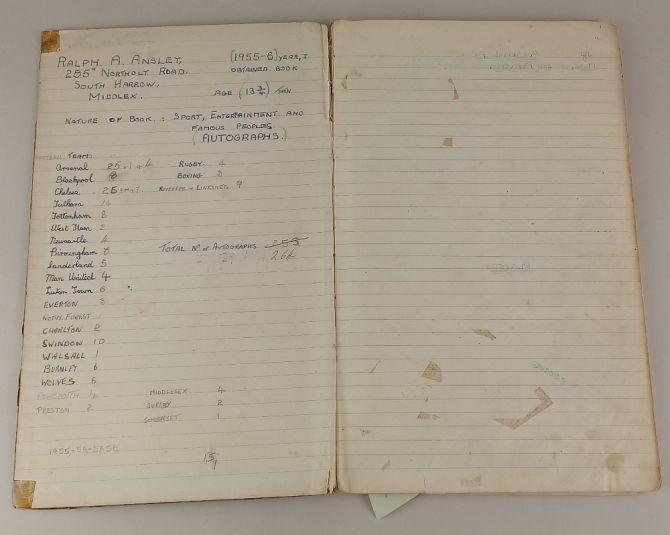 RALPH. A. ANSLEY, (1955-6) YEAR, I
285" NORTHOLT ROAD, OBTAINED BOOK
SOUTH HARROW,
MIDDLEX. AGE (13 3/4) THEN
NATURE OF BOOK : SPORT, ENTERTAINMENT AND
FAMOUS PEOPLES
(AUTOGRAPHS.)
FOOTBALL TEAM:
Arsenal 25 RUGBY 4
Blackpool 8 BOXING 8
Chelsea 26 REFEREES & LINESMEN 9
Fulham 14
Tottenham 8
West Ham 2
Newcastle 4
Birmingham 8 TOTAL No OF AUTOGRAPHS 255
Sunderland 5 264
Man United 4
Luton Town 6
EVERTON 3
NOTTM. FOREST
CHARLTON 2
SWINDON 10
WALSALL 1
BURNLEY 6
WOLVES 6
PORTSMOUTH 4 MIDDLESEX 4
PRESTON 2 SURREY 2
SOMERSET 1